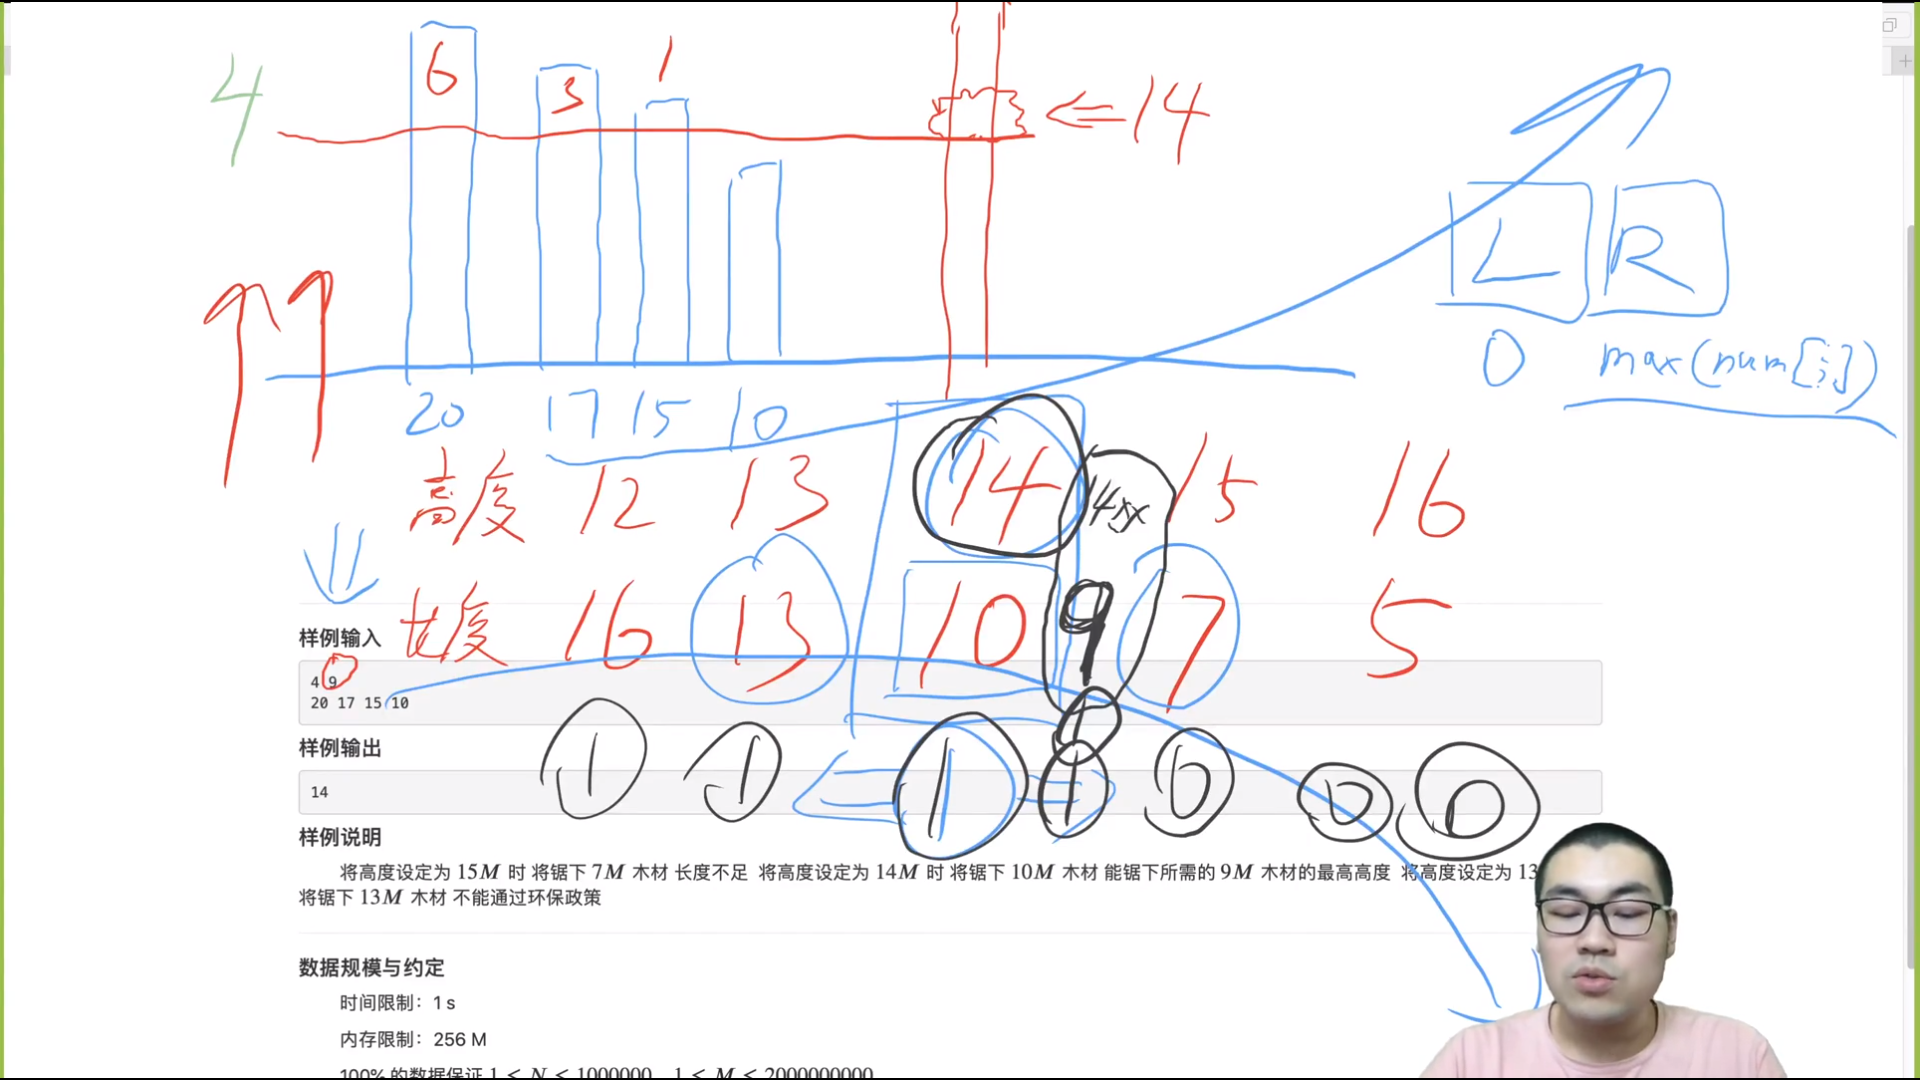 4
6 3 1
⇐14
L R
0 max(num[i])
20 17 15 10
高度 12 13 14 15 16
长度 16 13 10 9 7 5
样例输入
4 9
20 17 15 10
样例输出
14
1 1 1 1 0 0 0
样例说明
将高度设定为 15M 时 将锯下 7M 木材 长度不足 将高度设定为 14M 时 将锯下 10M 木材 能锯下所需的 9M 木材的最高高度 将高度设定为 13
将锯下 13M 木材 不能通过环保政策
数据规模与约定
时间限制：1 s
内存限制：256 M
100% 的数据保证 1 ≤ N ≤ 1000000，1 ≤ M ≤ 2000000000